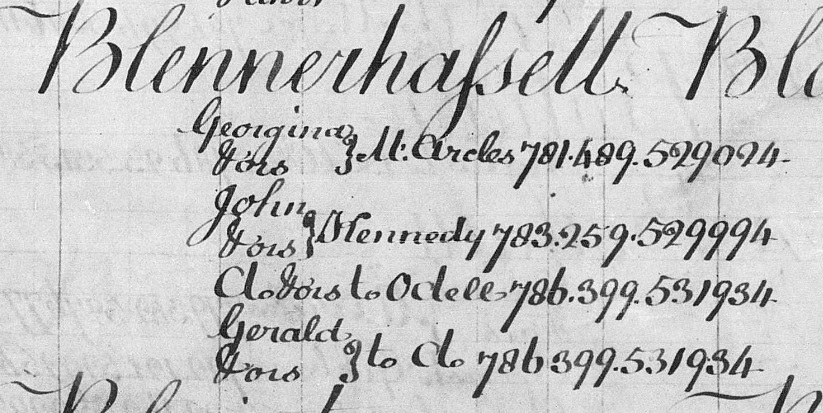 Blennerhassett. Bl
Georgina
& ors } McArcles 781.489.529024
John
& ors } Kennedy 783.259.529994
Do & ors to Odell 786.399.531934
Gerald
& ors } to Do 786 399.531934